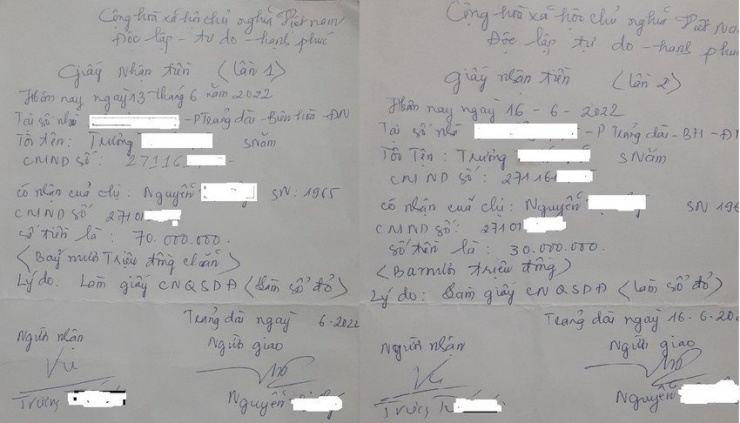 Cộng hòa xã hội chủ nghĩa Việt nam
Độc lập - tự do - hạnh phúc
Giấy nhận tiền (lần 1)
Hôm nay ngày 13 tháng 6 năm 2022
Tại số nhà - P Trảng dài - Biên hòa - ĐN
Tôi tên: Trương sNăm
CMND số: 27116
có nhận của chị: Nguyễn SN: 1965
CMND số 27101
số tiền là: 70.000.000.
(Bảy mươi Triệu đồng chẵn)
Lý do: Làm giấy CNQSDĐ (Làm sổ đỏ)
Trảng dài ngày 6.2022
Người nhận
Người giao
Trương
Nguyễn
Cộng hòa xã hội chủ nghĩa Việt Na
Độc lập tự do - hạnh phúc
Giấy nhận tiền (lần 2)
Hôm nay ngày 16 - 6 - 2022
Tại số nhà - P Trảng dài - BH - Đ
Tôi Tên: Trương SNăm
CMND số: 271161
có nhận của chị: Nguyễn SN 196
CMND số: 27101
số tiền là: 30.000.000.
(Ba mươi triệu đồng)
Lý do: Làm giấy CNQSDĐ (làm sổ đỏ)
Trảng dài ngày 16.6.202
Người nhận
Người giao
Trương
Nguyễn